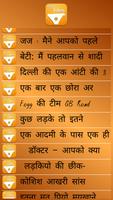 जज : मैने आपको पहले
बेटी: मैं पहलवान से शादी
दिल्ली की एक आंटी की 3
एक बार एक छोरा अर
Fogg की टीम GB Road
कुछ लड़के तो इतने
एक आदमी के पास एक ही
डॉक्टर – आपको क्या
लड़कियों की छींक-
कोशिश आखरी सांस